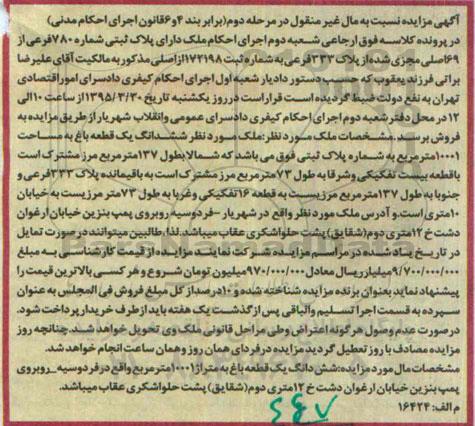 آگهی مزایده نسبت به مال غیر منقول در مرحله دوم(برابر بند ۴و۶قانون اجرای احکام مدنی)
در پرونده کلاسه فوق ارجاعی شعبه دوم اجرای احکام ملک دارای پلاک ثبتی شماره ۷۸۰فرعی از
۶۹اصلی مجزی شده از پلاک ۳۳۳فرعی به شماره ثبت ۱۷۲۱۹۸از اصلی مذکور به مالکیت آقای علیرضا
براتی فرزند یعقوب که حسب دستور دادیار شعبه اول اجرای احکام کیفری دادسرای امور اقتصادی
تهران به نفع دولت ضبط گردیده است قرار است در روز یکشنبه تاریخ ۱۳۹۵/۳/۳۰ از ساعت ۱۰الی
۱۲ در محل دفتر شعبه دوم اجرای احکام کیفری دادسرای عمومی وانقلاب شهریار از طریق مزایده به
فروش برسد. مشخصات ملک مورد نظر: ملک مورد نظر ششدانگ یک قطعه باغ به مساحت
۱۰۰۰۱مترمربع به شماره پلاک ثبتی فوق می باشد که شمالا بطول ۱۳۷مترمربع مرز مشترک است
باقطعه بیست تفکیکی وشرقا به طول ۷۳مترمربع مرز مشترک است به باقیمانده پلاک ۳۳۳فرعی و
جنوبا به طول ۱۳۷مترمربع مرزیست به قطعه ۱۶تفکیکی وغربا به طول ۷۳متر مرزیست به خیابان
۱۰متری است.و آدرس ملک مورد نظر واقع در شهریار -فردوسیه روبروی پمپ بنزین خیابان ارغوان
دشت خ ۱۲متری دوم(شقایق) پشت حلواشکری عقاب میباشد.لذا،طالبین میتوانند در صورت تمایل
در تاریخ یاد شده در مراسم مزایده شرکت نمایند.مزایده از قیمت کارشناسی به مبلغ
۹/۷۰۰/۰۰۰/۰۰۰میلیارریال معادل ۹۷۰/۰۰۰/۰۰۰میلیون تومان شروع و هر کسی بالاترین قیمت را
پیشنهاد نماید بعنوان برنده مزایده شناخته شده و ۱۰درصد از کل مبلغ فروش فی المجلس به عنوان
سپرده به قسمت اجرا تسلیم والباقی پس از گذشت یک هفته باید از طرف خریدار پرداخت شود.
در صورت عدم وصول هر گونه اعتراض وطی مراحل قانونی ملک وی تحویل خواهد شد.چنانچه روز
مزایده مصادف با روز تعطیل گردید مزایده در فردای همان روز و همان ساعت انجام خواهد شد.
مشخصات مال مورد مزایده:شش دانگ یک قطعه باغ به متراژ ۱۰۰۰۱مترمربع واقع در فردوسیه_روبروی
پمپ بنزین خیابان ارغوان دشت خ ۱۲متری دوم(شقایق) پشت حلواشکری عقاب میباشد.
م الف: ۱۶۴۲۴